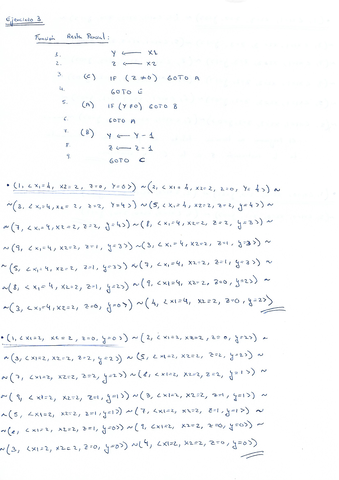 Ejercicio 3
Función Resta Parcial:
1. Y ← X1
2. Z ← X2
3 (C) IF (Z≠0) GOTO A
4. GOTO E
5. (A) IF (Y≠0) GOTO B
6. GOTO A
7 (B) Y ← Y-1
8 Z ← Z-1
9. GOTO C
• (1, <X1=4, X2=2, Z=0, Y=0>) ~ (2, <X1=4, X2=2, Z=0, Y=4>) ~
~ (3, <X1=4, X2=2, Z=2, Y=4>) ~ (5, <X1=4, X2=2, Z=2, Y=4>) ~
~ (7, <X1=4, X2=2, Z=2, Y=4>) ~ (8, <X1=4, X2=2, Z=2, Y=3>) ~
~ (9, <X1=4, X2=2, Z=1, Y=3>) ~ (3, <X1=4, X2=2, Z=1, Y=3>) ~
~ (5, <X1=4, X2=2, Z=1, Y=3>) ~ (7, <X1=4, X2=2, Z=1, Y=3>) ~
~ (8, <X1=4, X2=2, Z=1, Y=2>) ~ (9, <X1=4, X2=2, Z=0, Y=2>) ~
~ (3, <X1=4, X2=2, Z=0, Y=>) ~ (4, <X1=4, X2=2, Z=0, Y=2>)
• (1, <X1=2, X2=2, Z=0, Y=0>) ~ (2, <X1=2, X2=2, Z=0, Y=2>) ~
~ (3, <X1=2, X2=2, Z=2, Y=2>) ~ (5, <X1=2, X2=2, Z=2, Y=2>) ~
~ (7, <X1=2, X2=2, Z=2, Y=2>) ~ (8, <X1=2, X2=2, Z=2, Y=1>) ~
~ (9, <X1=2, X2=2, Z=1, Y=1>) ~ (3, <X1=2, X2=2, Z=1, Y=1>) ~
~ (5, <X1=2, X2=2, Z=1, Y=1>) ~ (7, <X1=2, X2=2, Z=1, Y=1>) ~
~ (8, <X1=2, X2=2, Z=1, Y=0>) ~ (9, <X1=2, X2=2, Z=0, Y=0>) ~
~ (3, <X1=2, X2=2, Z=0, Y=0>) ~ (4, <X1=2, X2=2, Z=0, Y=0>)